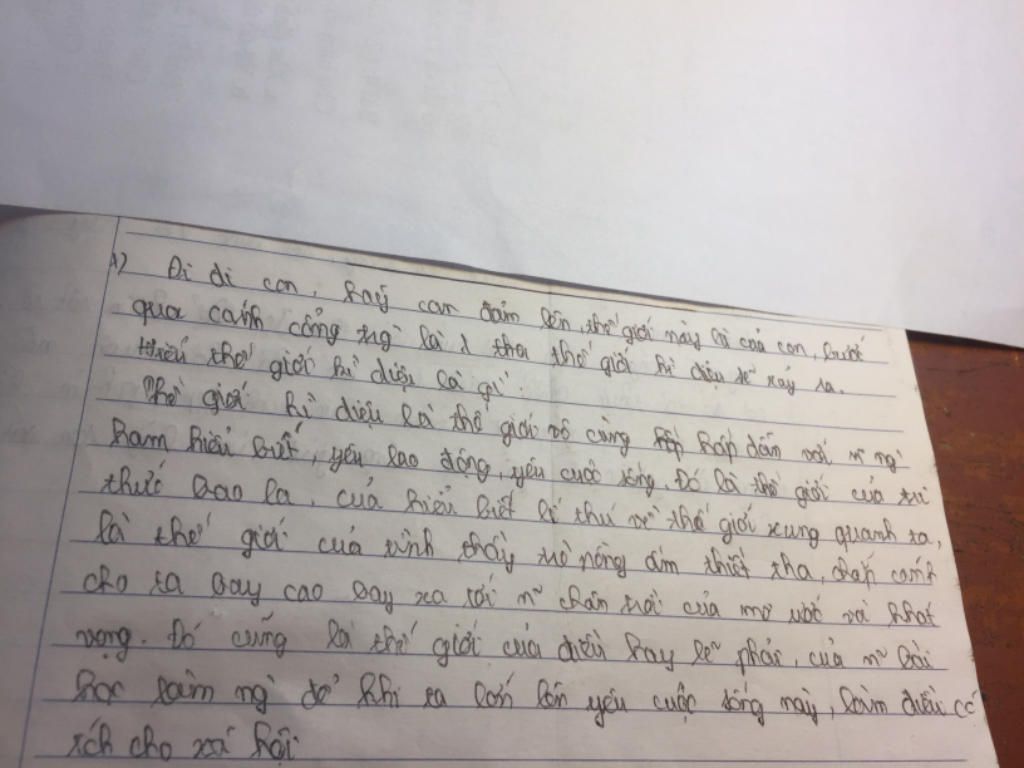 1) Đi đi con, hãy can đảm lên, thế giới này là của con, bước
qua cánh cổng trg là 1 thế giới kì diệu sẽ xảy ra.
thế giới kì diệu là gì:
Thế giới kì diệu là thế giới vô cùng hấp dẫn với n~ ng`
ham hiểu biết, yêu lao động, yêu cuộc sống. Đó là thế giới của tri
thức bao la, của hiểu biết lí thú về thế giới xung quanh ta,
là thế giới của tình thầy trò nồng ấm thiết tha, chắp cánh
cho ta bay cao bay xa tới n~ chân trời của mơ ước và khát
vọng. Đó cũng là thế giới của điều hay lẽ phải, của n~ bài
học làm ng` để khi ta lớn lên yêu cuộc sống này, làm điều có
ích cho xã hội